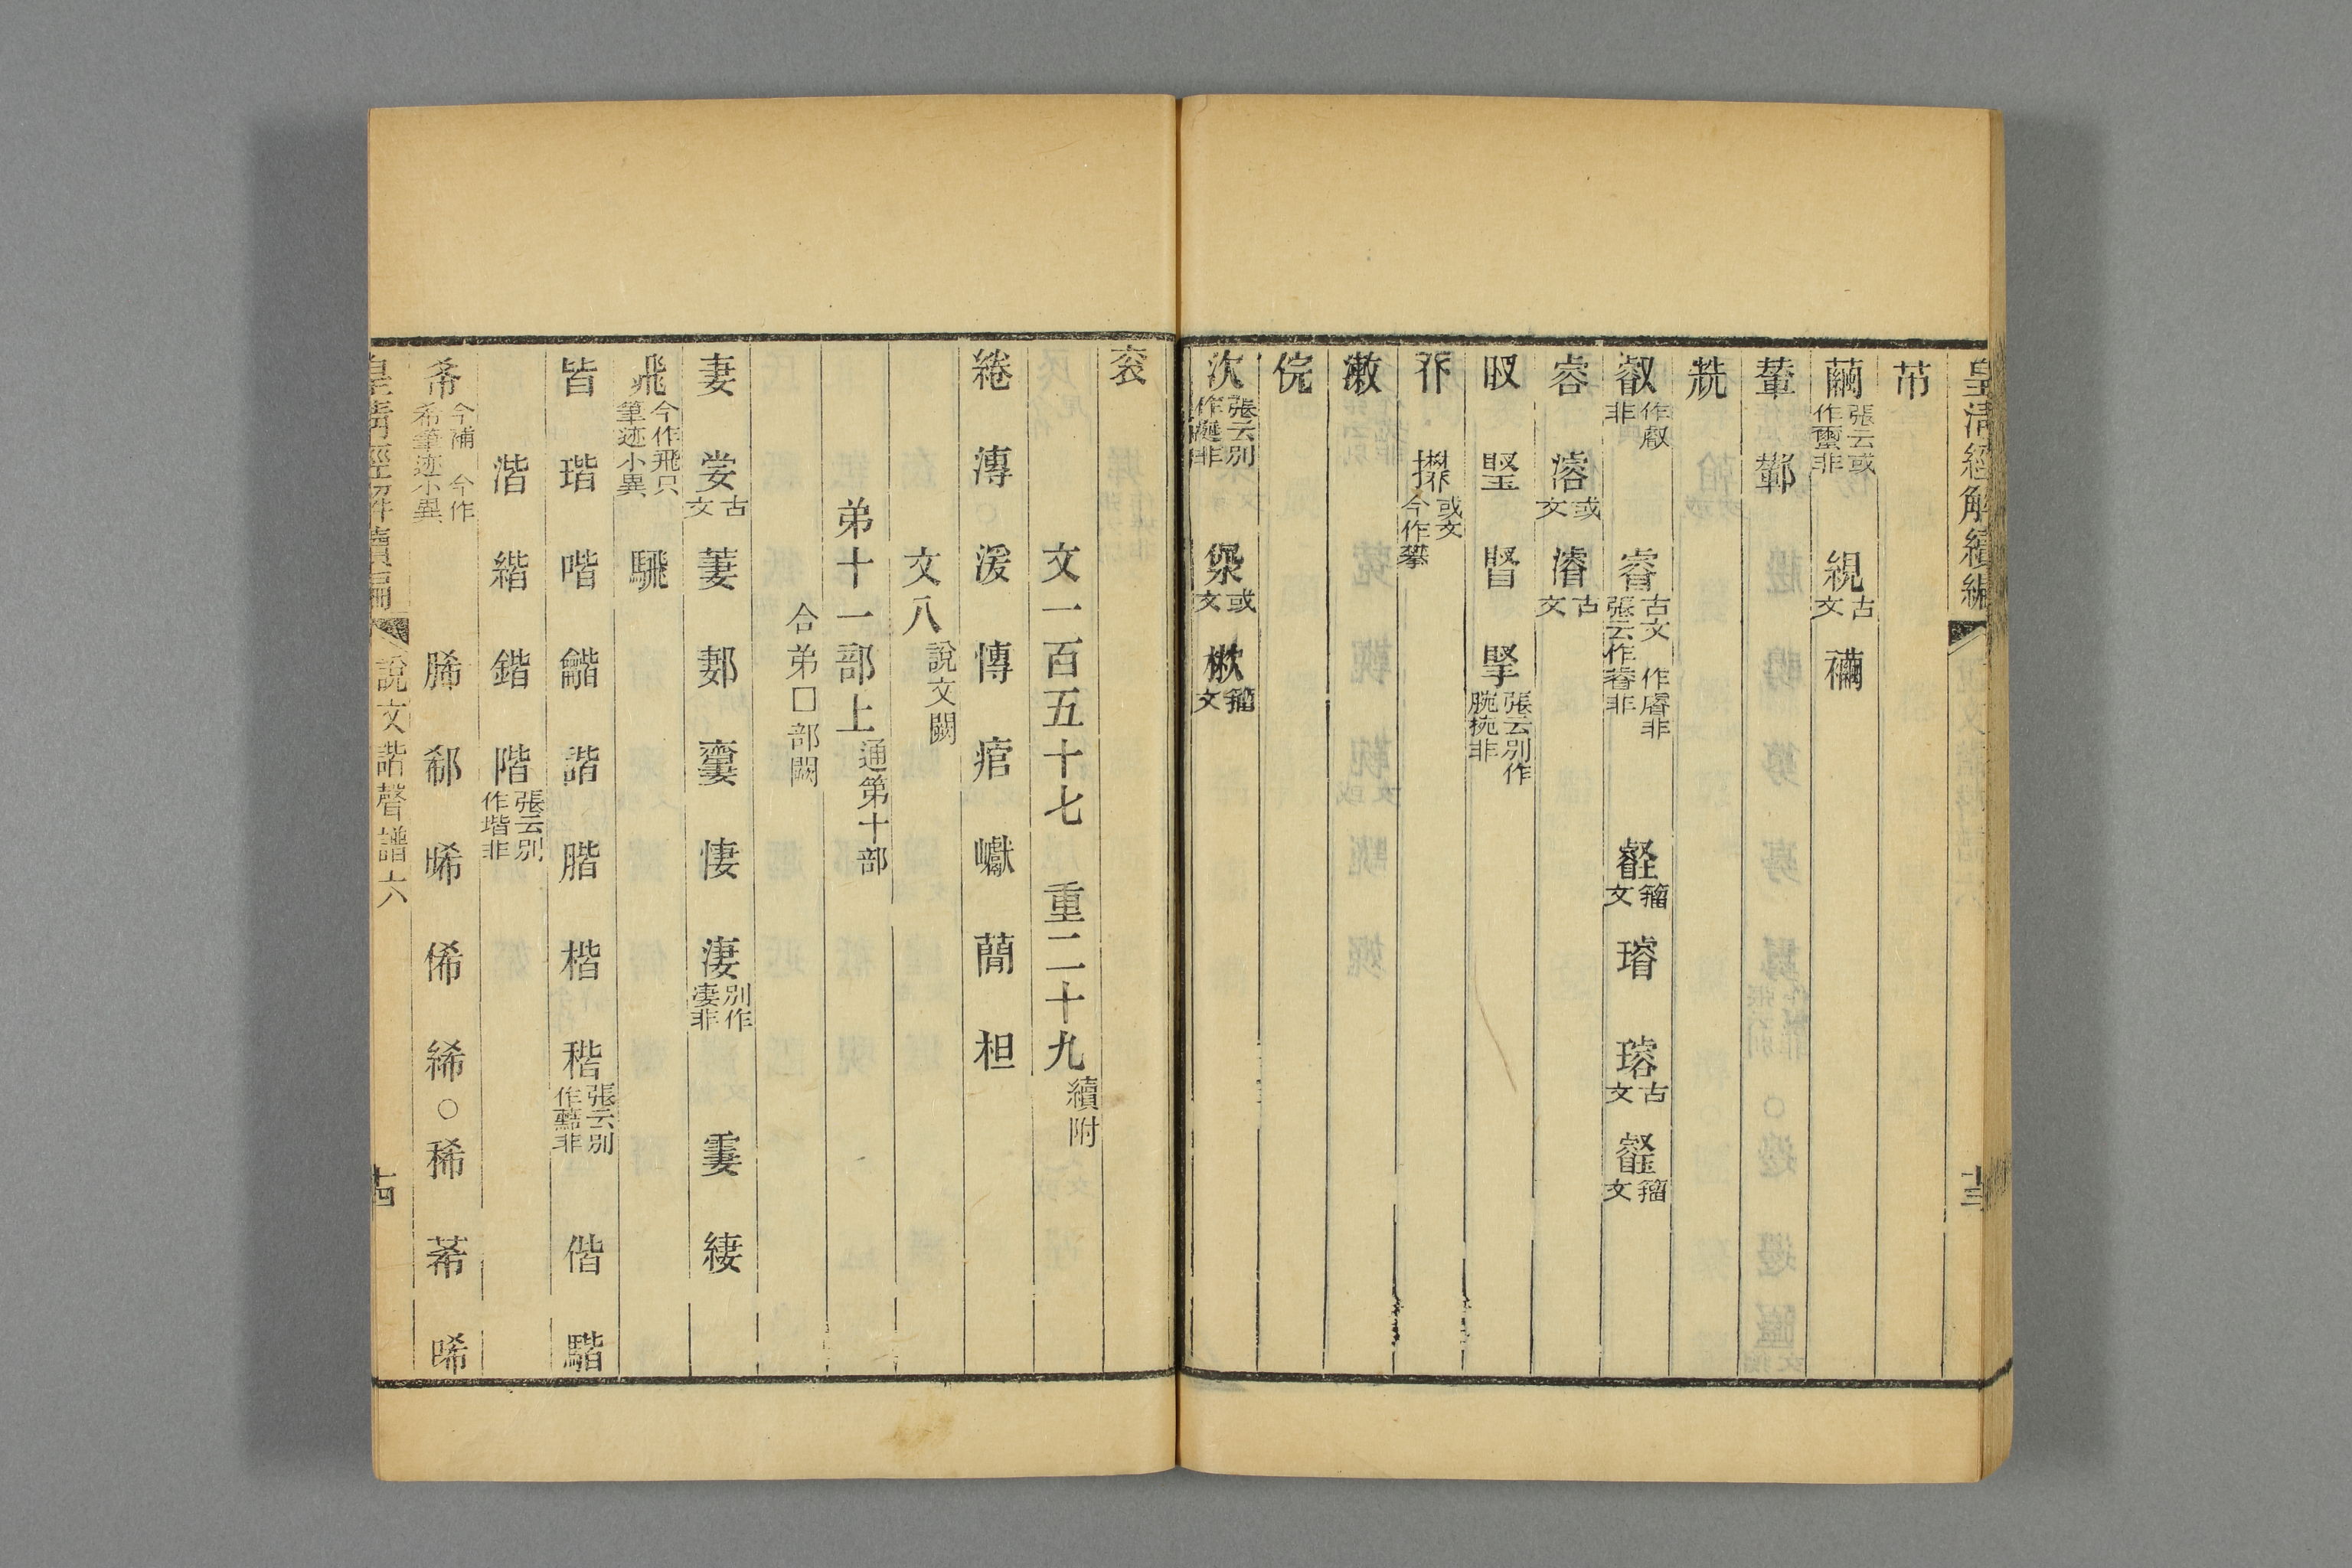 皇清經解續編 十三
芇
繭 張云或作𧝓非 絸 古文 襺
𦽅 鄻
㲦
叡 作㕡非 睿 古文 作𥈠非 張云作䜭非 壡 籀文 璿 璿 古文 叡 籀文
容 濬 或文 濬 古文
臤 堅 䝨 掔 張云別作腕捥非
𠬜 攀 或文 今作攀
漱
俒
次 張云別作涎非 㳄 或文 㰞 籀文
衮
文一百五十七 重二十九 續附
綣 漙 湲 慱 痯 巘 蕑 柦
文八 說文闕
弟十一部上 通第十部
合弟□部闕
妻 㛗 古文 萋 郪 齌 悽 淒 別作凄非 霋 緀
飛 今作飛只筆迹小異 騛
皆 瑎 喈 龤 諧 腊 楷 稭 張云別作蘸非 偕 騞
湝 緒 鍇 階 張云別作堦非
希 今補 今作希筆迹小異 脪 郗 晞 俙 絺 ○ 稀 莃 晞
皇清經解續編 說文諧聲譜六 十四